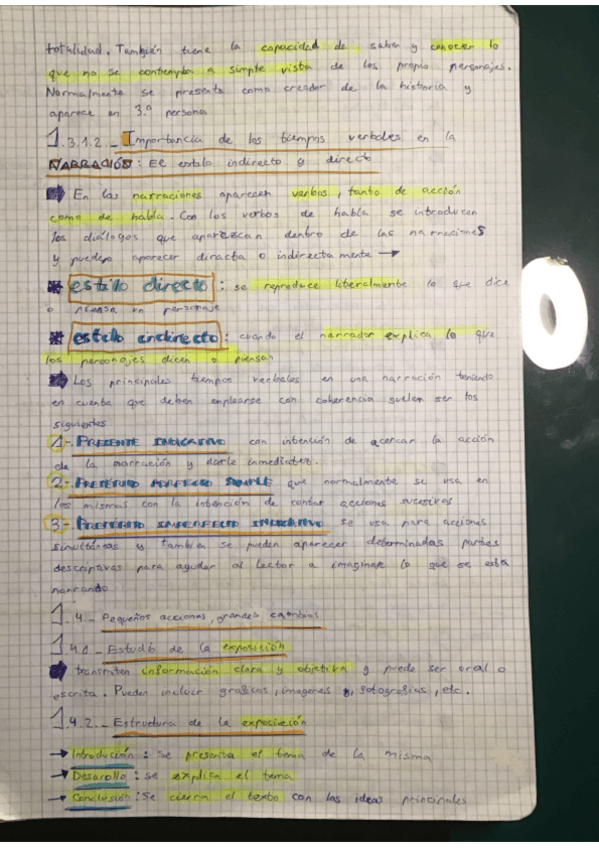 totalidad. También tiene la capacidad de saber y conocer lo
que no se contempla a simple vista de los propio personajes.
Normalmente se presenta como creador de la historia y
aparece en 3.ª persona
1.3.1.2._ Importancia de los tiempos verbales en la
NARRACIÓN: El estilo indirecto y directo
En las narraciones aparecen verbos, tanto de acción
como de habla. Con los verbos de habla se introducen
los diálogos que aparezcan dentro de las narraciones
y pueden aparecer diracta o indirectamente →
* estilo directo : se reproduce literalmente lo que dice
o piensa un personaje
* estilo indirecto : cuando el narrador explica lo que
los personajes dicen o piensan
Los principales tiempos verbales en una narración teniendo
en cuenta que deben emplearse con coherencia suelen ser los
siguientes
1-. PRESENTE INDICATIVO con intención de acercar la acción
de la narración y darle inmediatez.
2-. PRETÉRITO PERFECTO SIMPLE que normalmente se usa en
los mismas con la intención de contar acciones sucesivas
3-. PRETÉRITO IMPERFECTO INDICATIVO se usa para acciones
simultáneas y también se pueden aparecer determinadas partes
descriptivas para ayudar al lector a imaginar lo que se está
narrando
1.4._ Pequeñas acciones, grandes cambios
1.4.1_ Estudio de la exposición
transmiten información clara y objetiva y puede ser oral o
escrita. Pueden incluir graficos, imagenes, fotografias, etc.
1.4.2._ Estructura de la exposición
→ Introducción : Se presenta el tema de la misma
→ Desarollo : se explica el tema
→ Conclusión : Se cierra el texto con las ideas principales